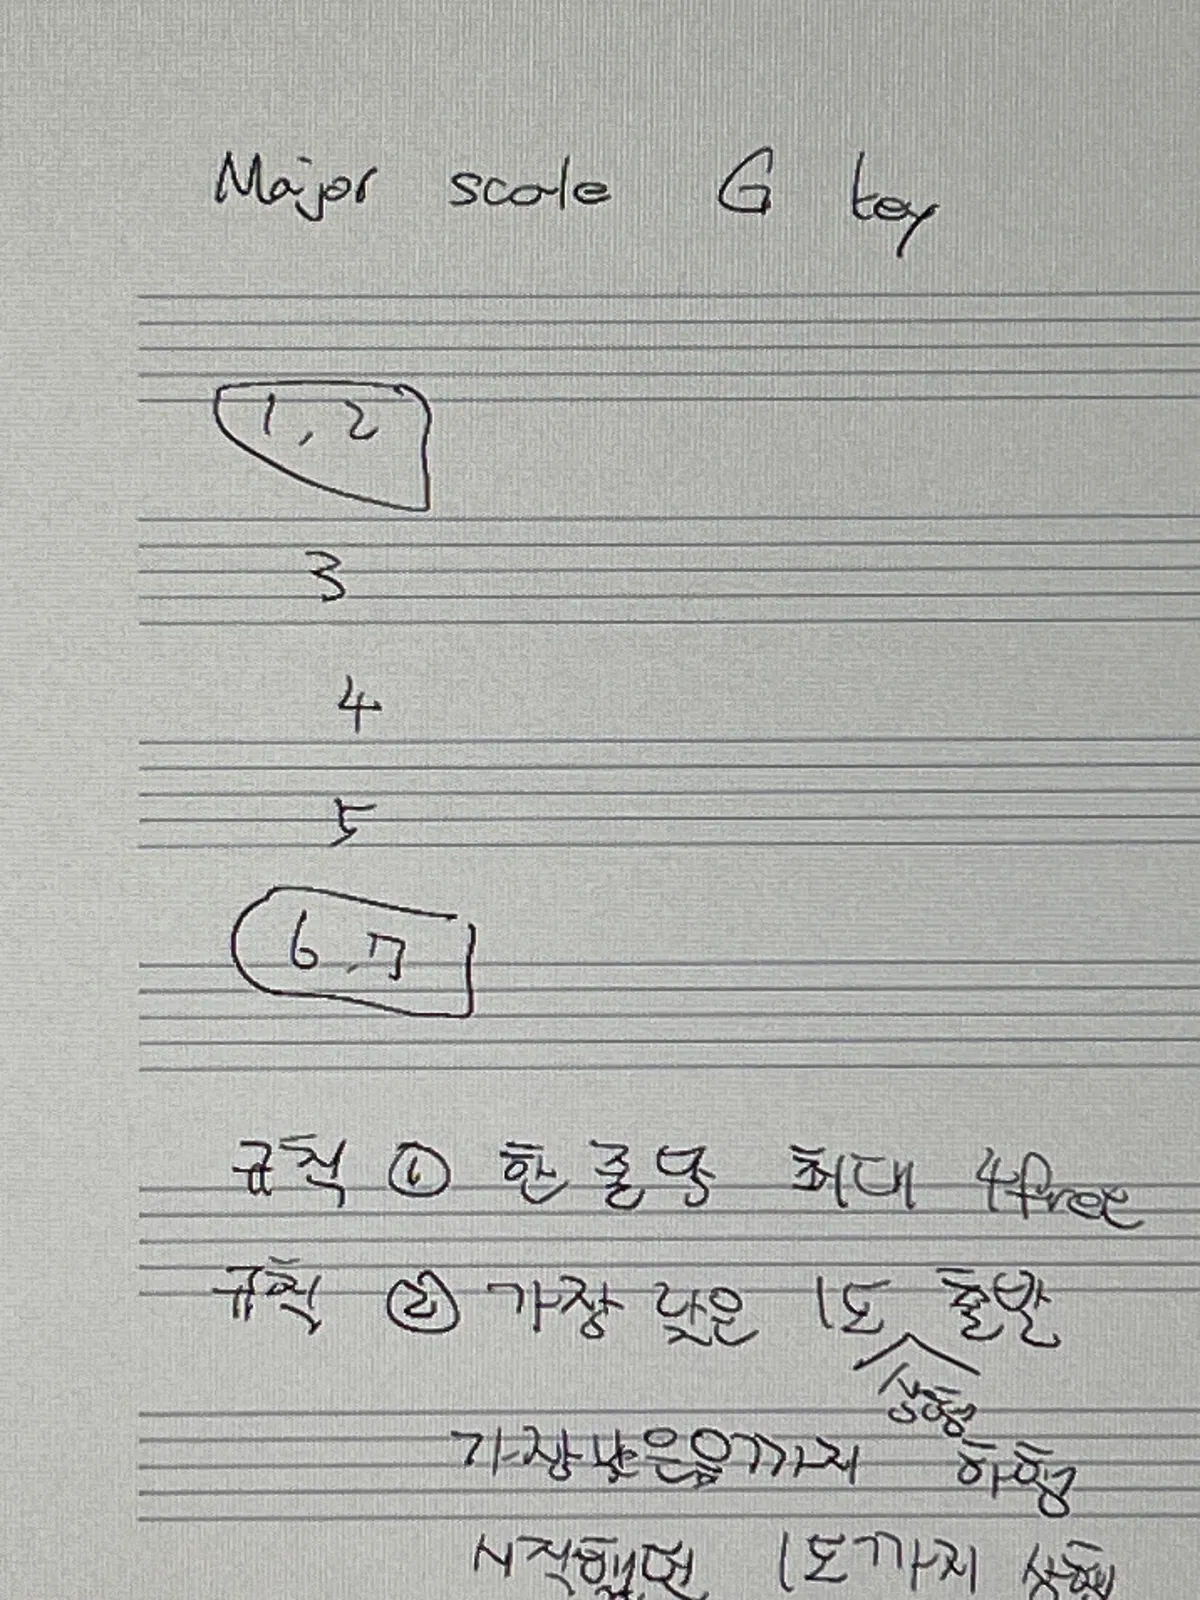 Major scale G key
1, 2
3
4
5
6, 7
규칙 ① 한 줄당 최대 4free
규칙 ② 가장 낮은 1도 출발
상행
가장낮은음까지 하행
시작했던 1도까지 상행